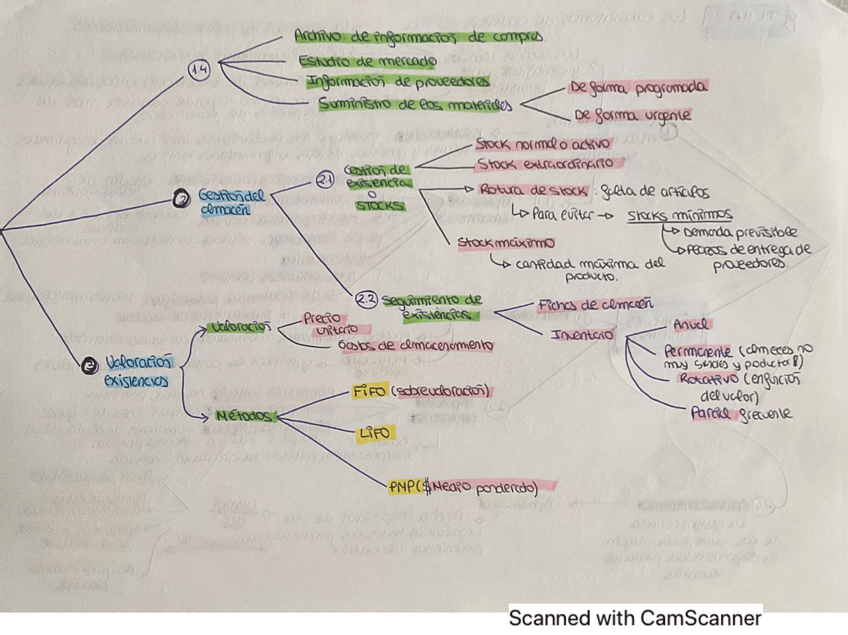 1.4
Archivo de información de compras
Estudio de mercado
Información de proveedores
Suministro de los materiales
De forma programada
De forma urgente
2 Gestión del
almacén
2.1 Gestión de
existencia
o
STOCKS
Stock normal o activo
Stock extraordinario
Rotura de stock. falta de artículos
Para evitar → stocks mínimos
Demanda previsible
Plazos de entrega de
proveedores.
Stock máximo
cantidad máxima del
producto.
2.2 Seguimiento de
existencias
Fichas de almacén
Inventario
Anual
Permanente (almacenes no
muy grandes y productos)
Rotativo (en función
del valor)
Parcial frecuente
3 Valoración
existencias
Valoración
Precio
unitario
Costes de almacenamiento
Métodos
FIFO (sobrevaloración)
LIFO
PMP ($ Medio ponderado)
Scanned with CamScanner